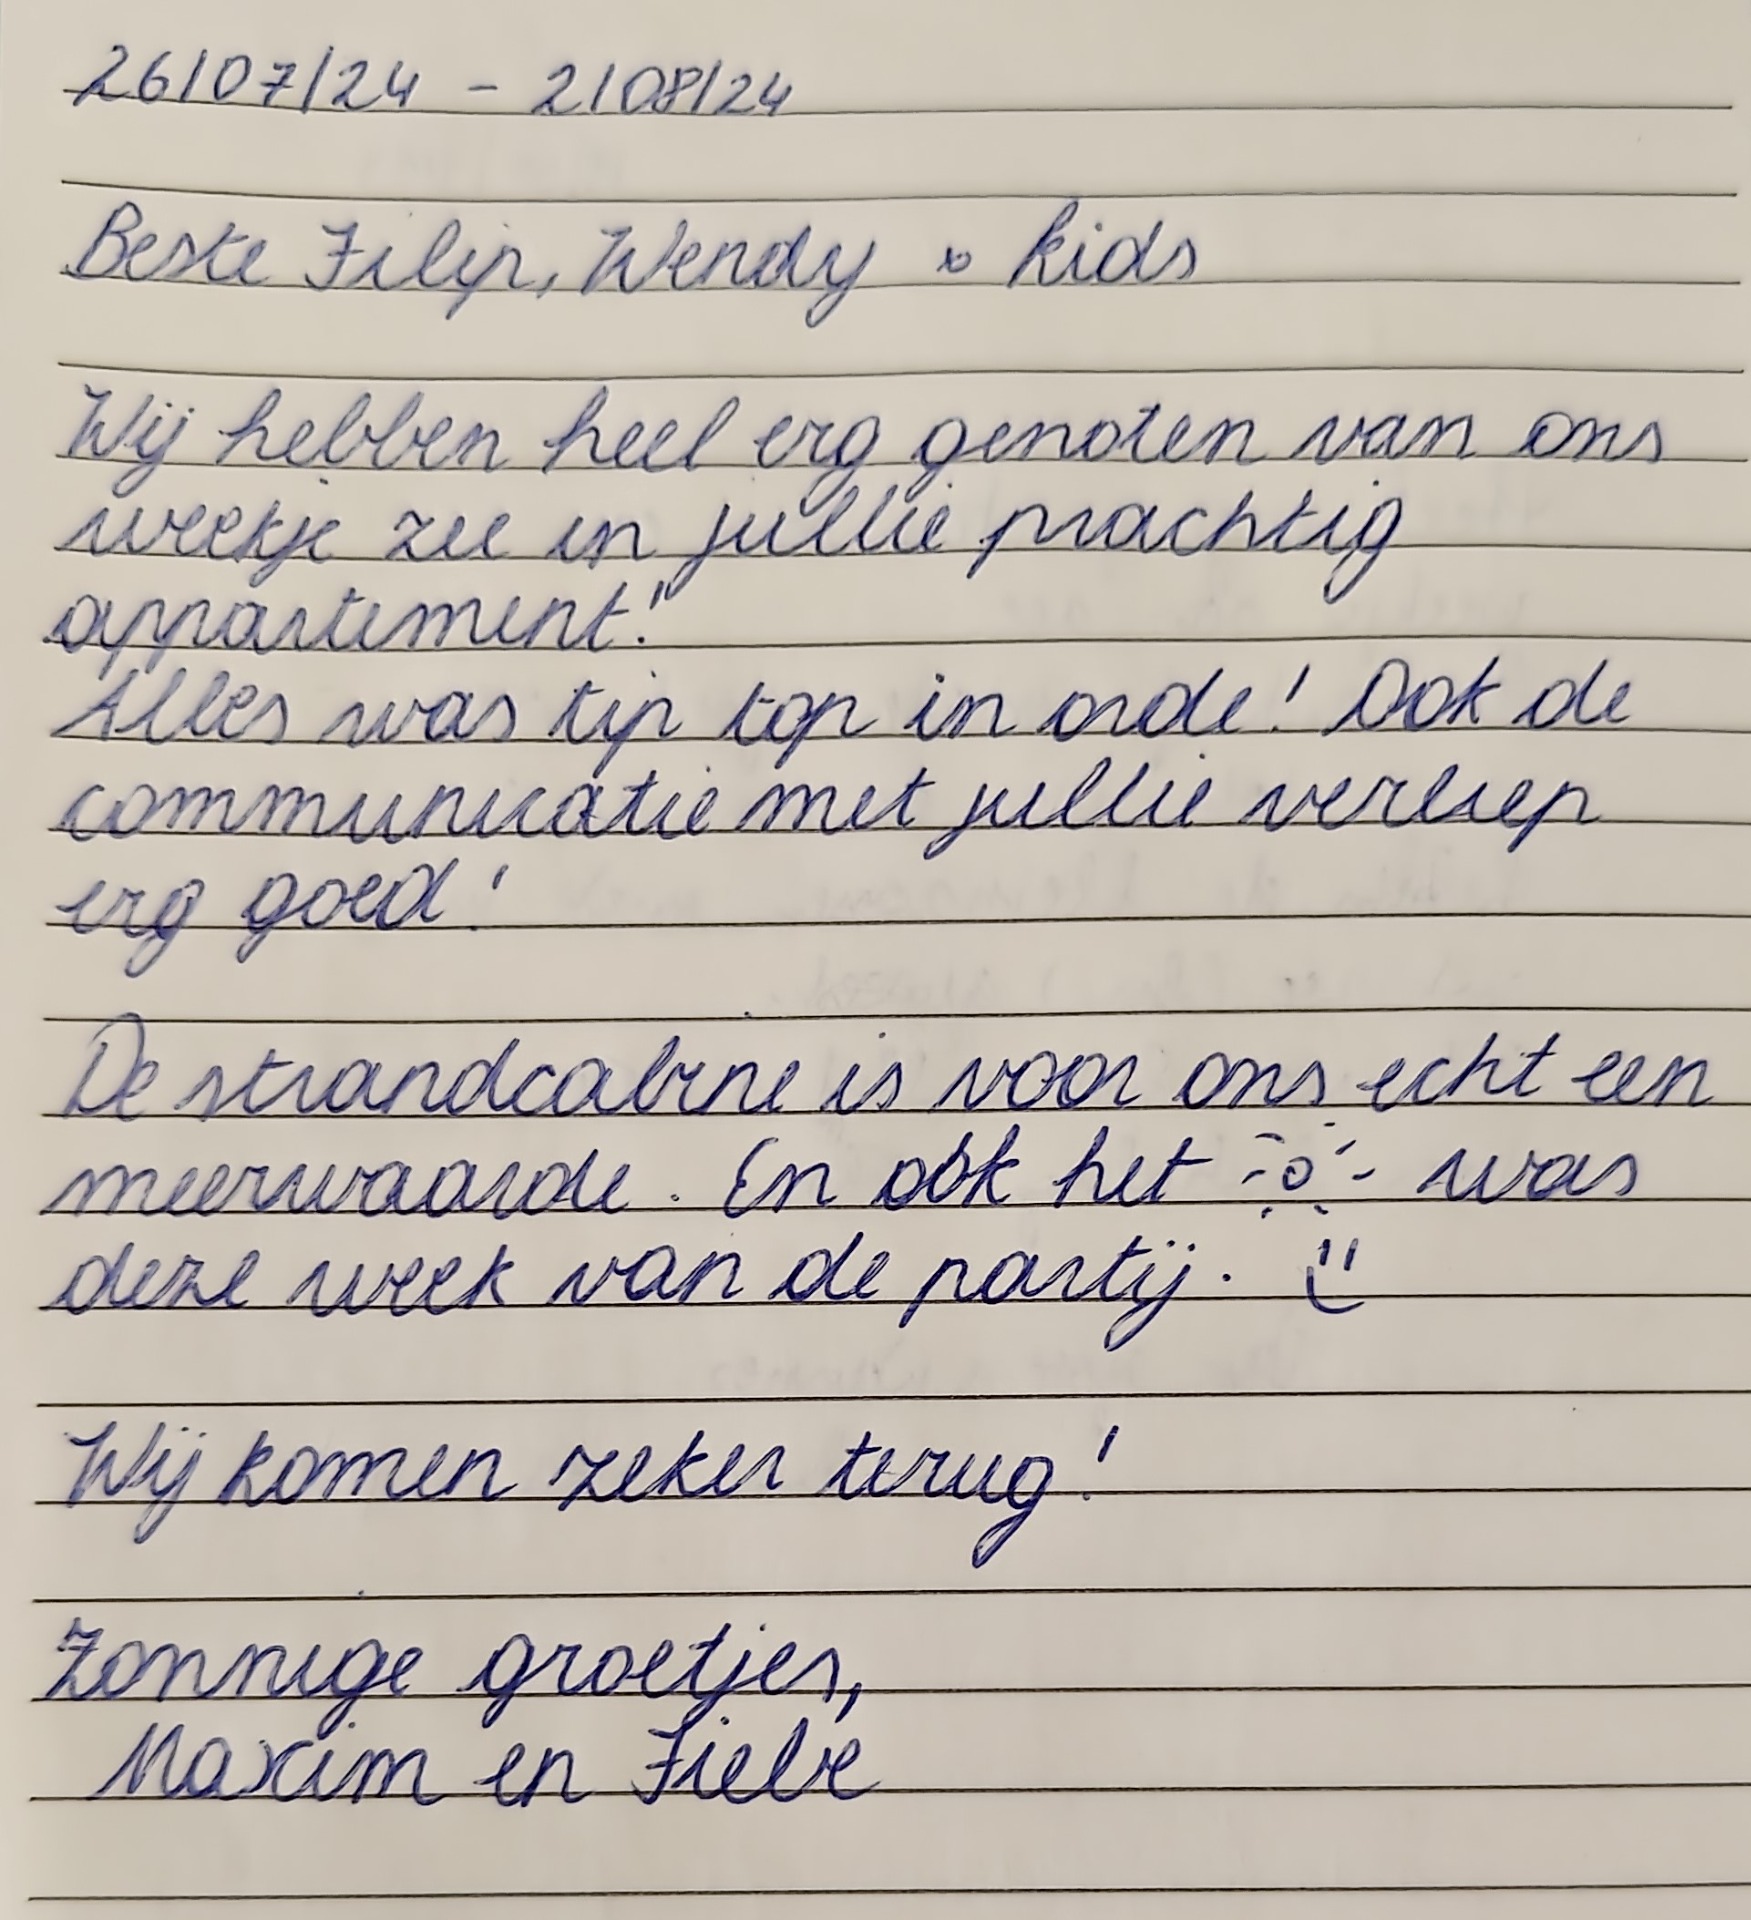 26/07/24 - 2/08/24
Beste Filip, Wendy & kids
Wij hebben heel erg genoten van ons
weekje zee in jullie prachtig
appartement!
Alles was tip top in orde! Ook de
communicatie met jullie verliep
erg goed!
De strandcabine is voor ons echt een
meerwaarde. En ook het ☀ was
deze week van de partij. :)
Wij komen zeker terug!
Zonnige groetjes,
Maxim en Fiebe